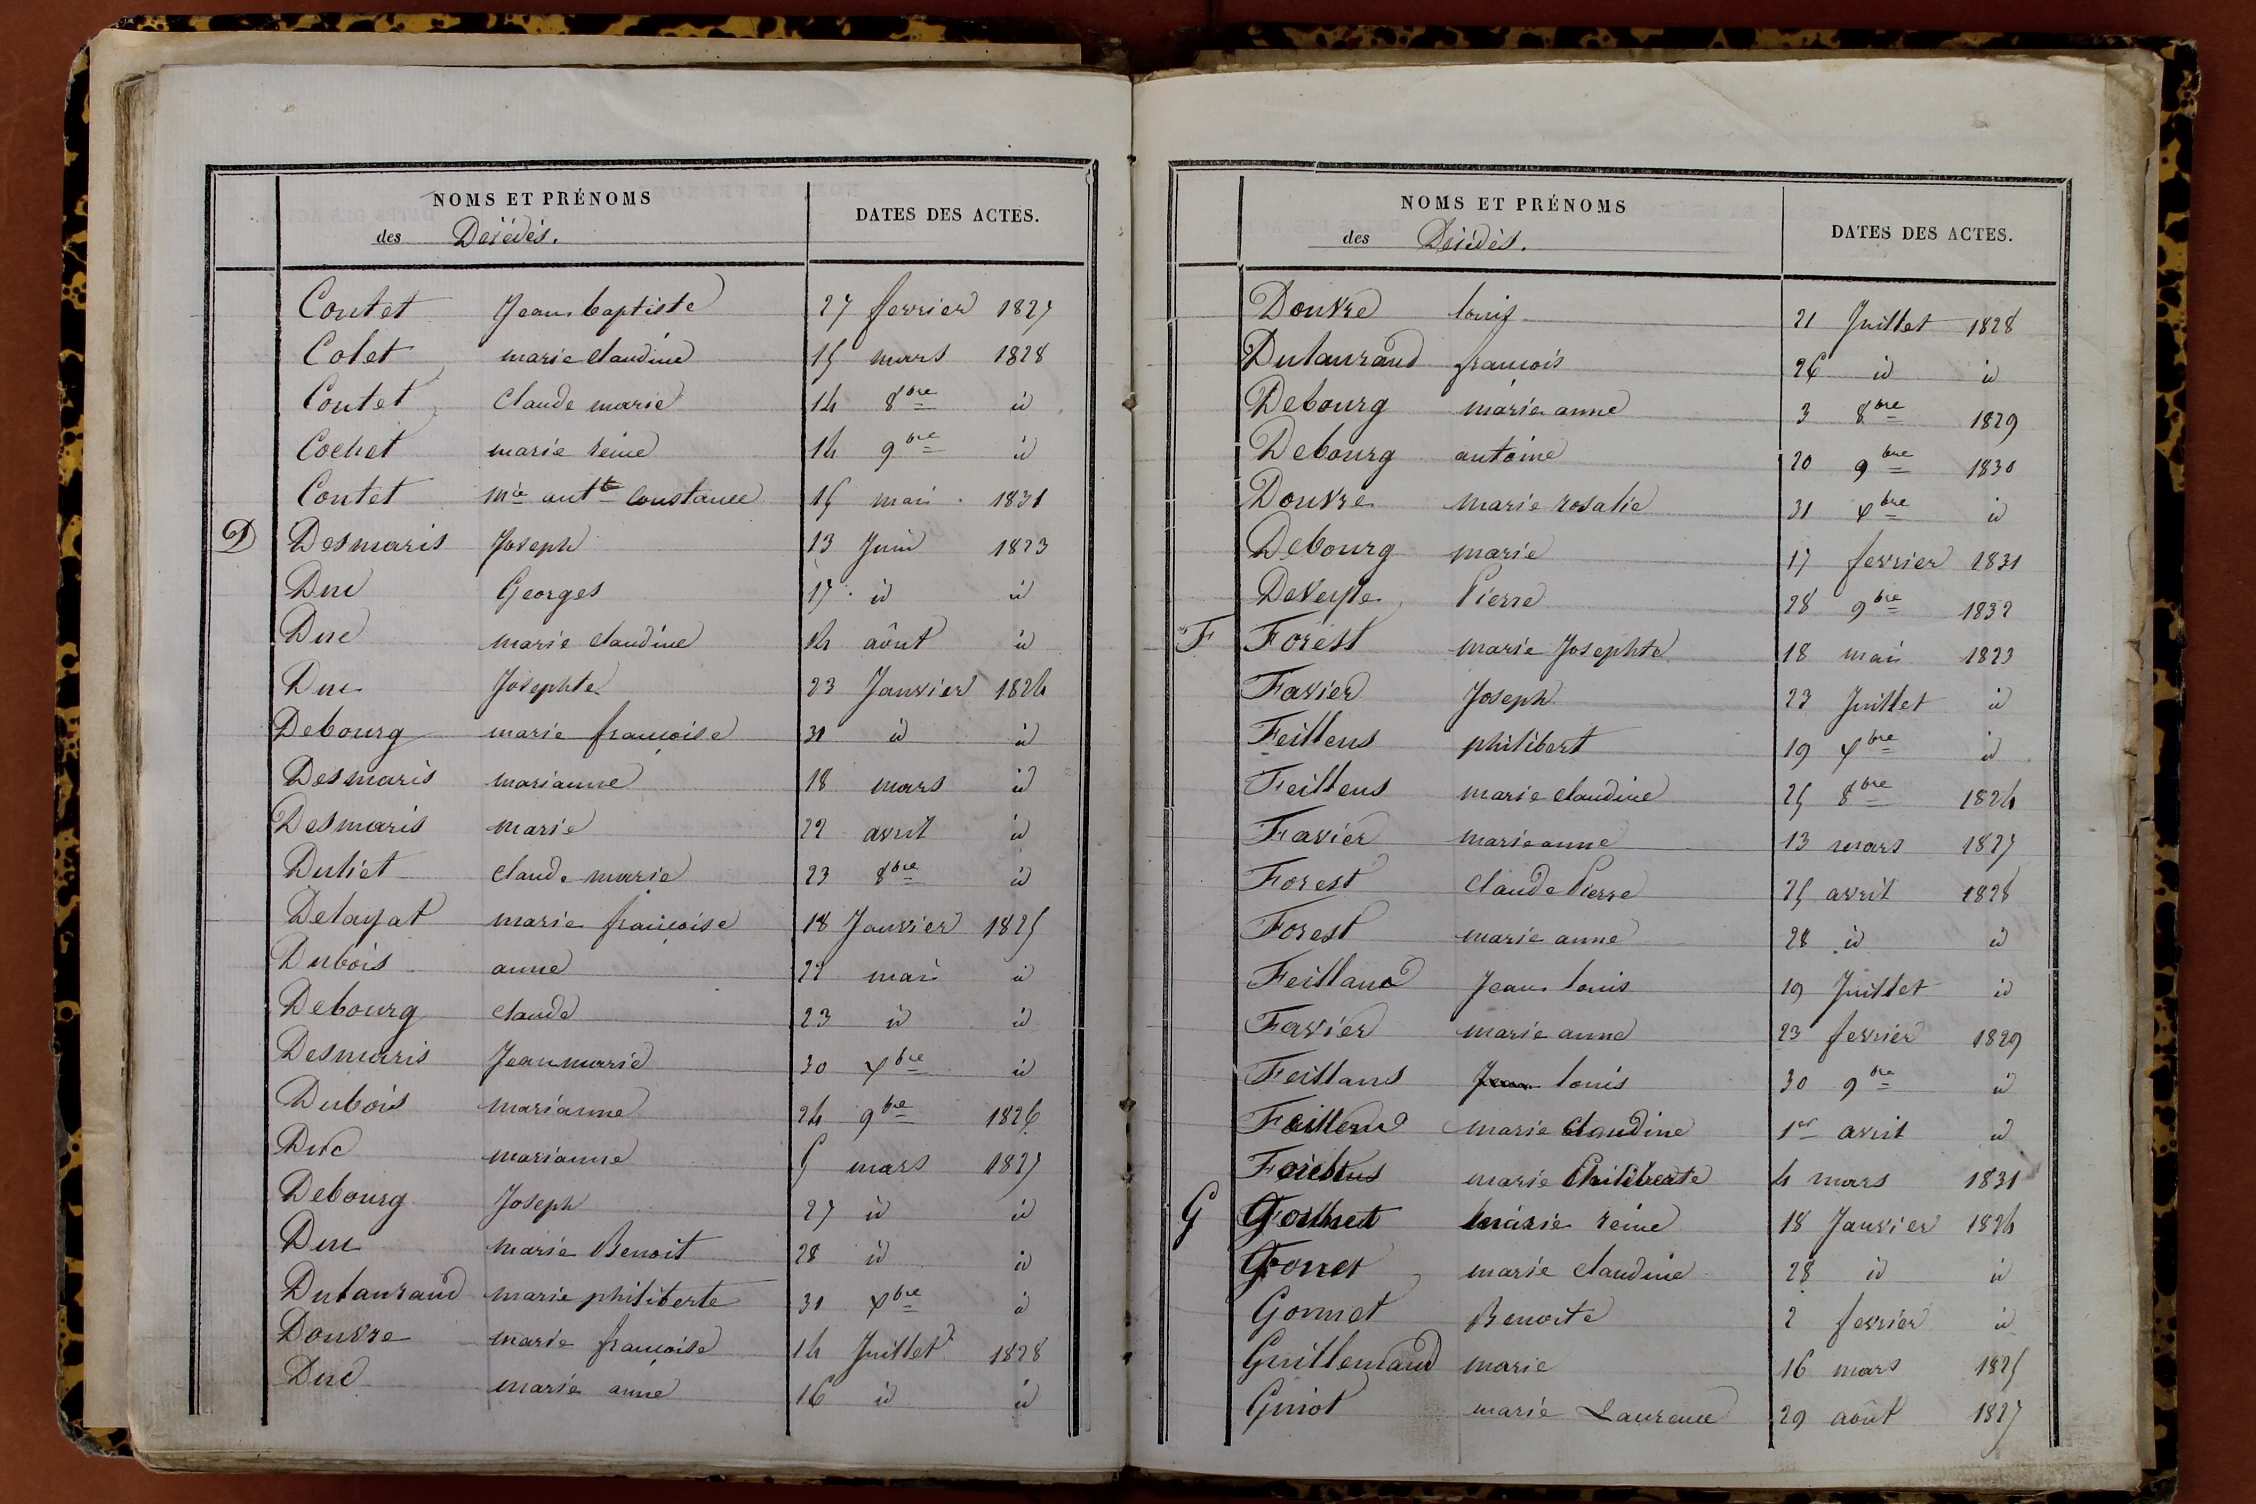 NOMS ET PRÉNOMS
des Décédés.
DATES DES ACTES.
Contet Jean baptiste 27 fevrier 1827
Colet marie claudine 15 mars 1828
Contet Claude marie 14 8bre id
Cochet marie reine 14 9bre id
Contet Mie antte Constance 15 mai 1831
D Desmaris Joseph 13 Juin 1823
Duc Georges 17 id id
Duc marie claudine 14 août id
Duc Josephte 23 Janvier 1824
Debourg marie françoise 31 id id
Desmaris marianne 18 mars id
Desmaris marie 22 avril id
Duliet claude marie 23 8bre id
Delayat marie françoise 18 Janvier 1825
Dubois anne 22 mai id
Debourg claude 23 id id
Desmaris Jean marie 30 xbre id
Dubois marianne 24 9bre 1826
Duc marianne 5 mars 1827
Debourg Joseph 27 id id
Duc marie Benoit 28 id id
Dutauraud marie philiberte 31 xbre id
Douvre marie françoise 14 Juillet 1828
Duc marie anne 16 id id
NOMS ET PRÉNOMS
des Décédés.
DATES DES ACTES.
Douvre louis 21 Juillet 1828
Dutauraud françois 26 id id
Debourg marie anne 3 8bre 1829
Debourg antoine 20 9bre 1830
Douvre marie rosalie 31 xbre id
Debourg marie 17 fevrier 1831
Deveyle Pierre 28 9bre 1832
F Forest marie Josephte 18 mai 1823
Favier Joseph 23 Juillet id
Feillens philibert 19 xbre id
Feillens marie claudine 25 8bre 1824
Favier marie anne 13 mars 1827
Forest Claude Pierre 25 avril 1828
Forest marie anne 28 id id
Feilland Jean louis 19 Juillet id
Favier marie anne 23 fevrier 1829
Feillans Jean louis 30 9bre id
marie Claudine 1er avril id
marie Philiberte 4 mars 1831
G marie reine 18 Janvier 1824
Gonet marie claudine 28 id id
Gonnet Benoite 2 fevrier id
Guillemaud marie 16 mars 1825
Guiot marie Laurence 29 août 1827